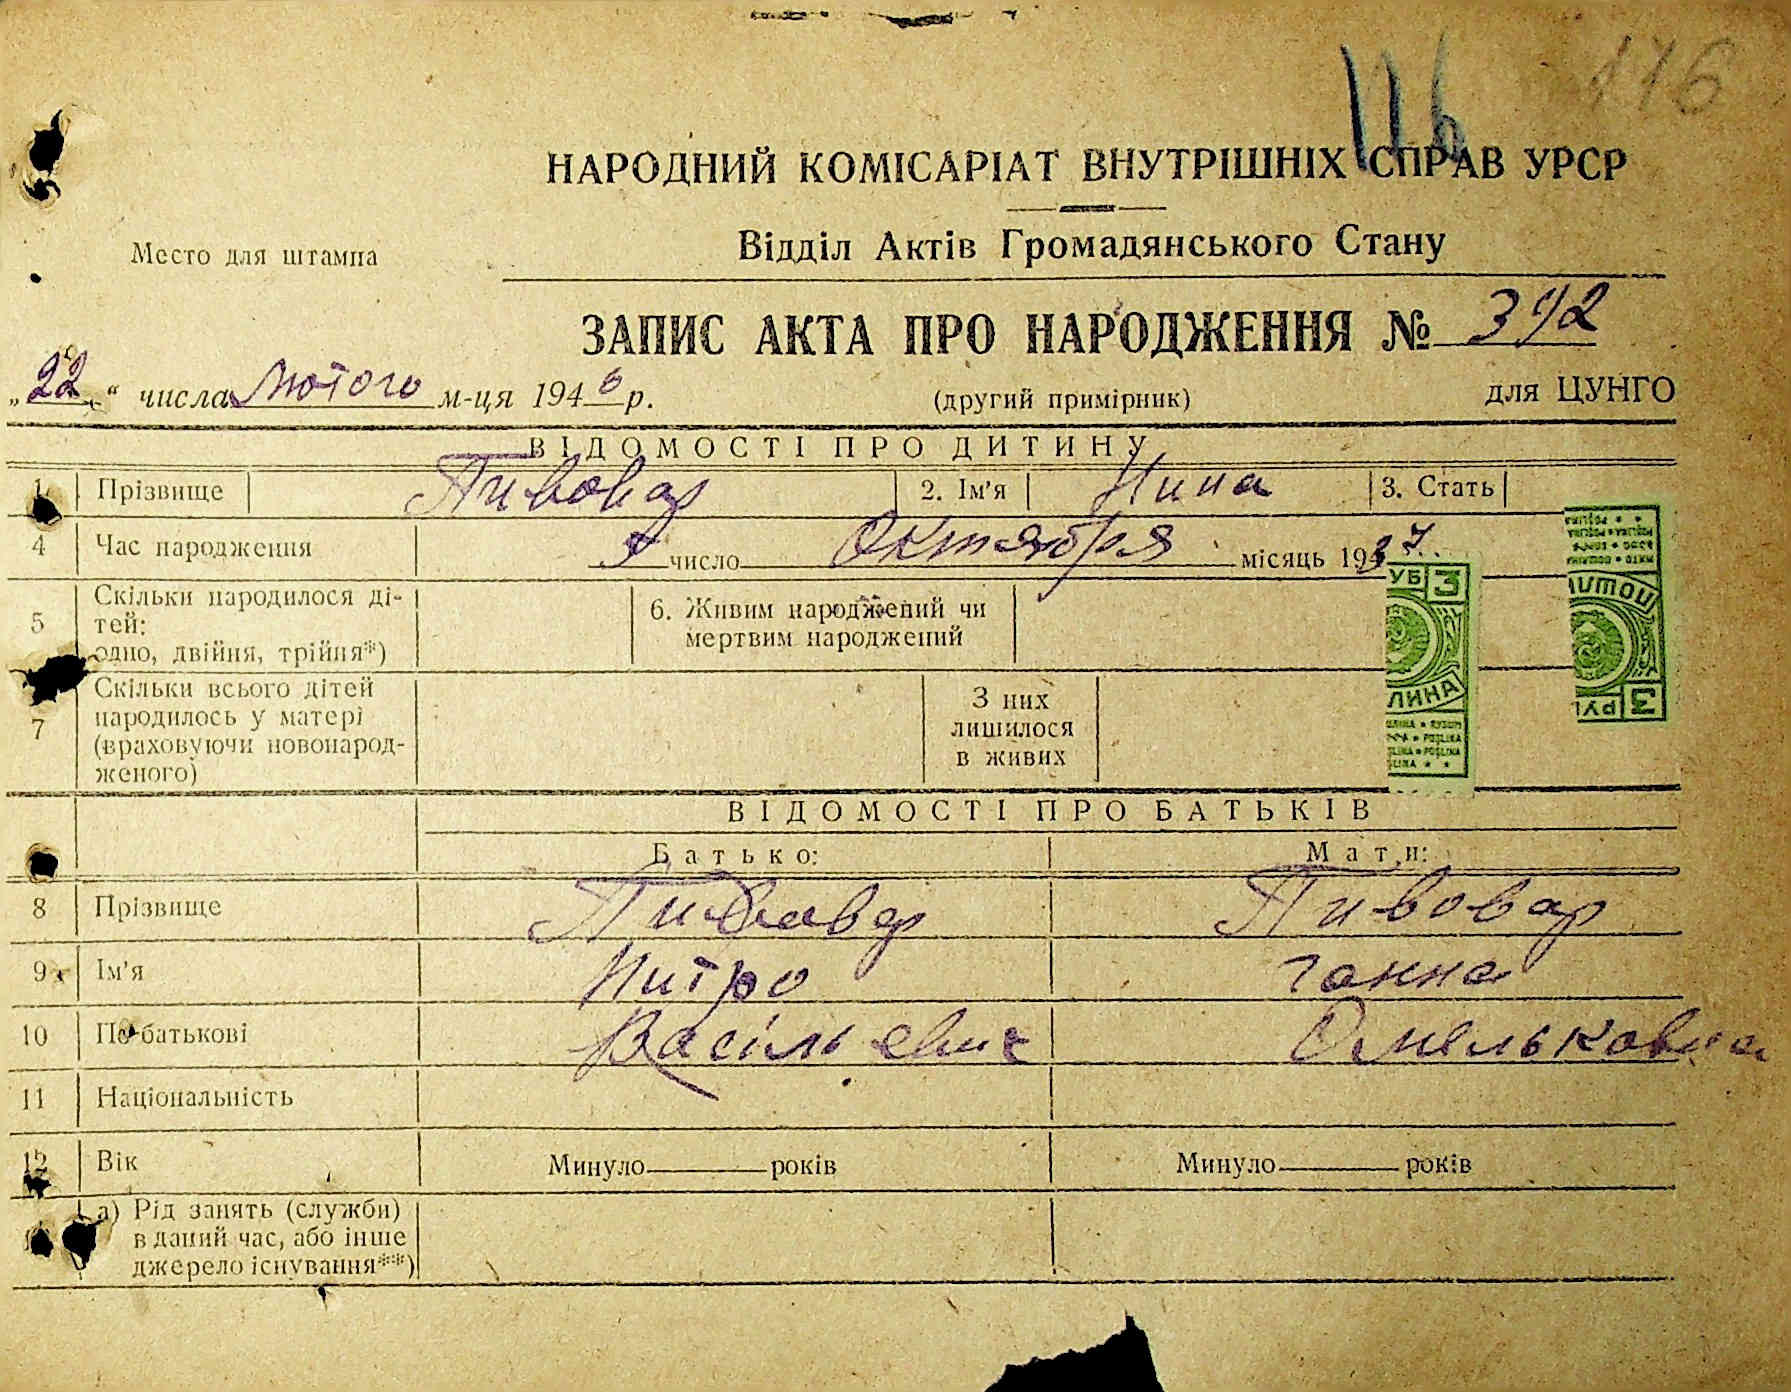 116 116
НАРОДНИЙ КОМІСАРІАТ ВНУТРІШНІХ СПРАВ УРСР
Место для штампа
Відділ Актів Громадянського Стану
ЗАПИС АКТА ПРО НАРОДЖЕННЯ № 392
„22“ числа Лютого м-ця 1946 р. (другий примірник) для ЦУНГО
ВІДОМОСТІ ПРО ДИТИНУ
1 Прізвище Пивовар 2. Ім'я Нина 3. Стать
4 Час народження число Октября місяць 1937
5 Скільки народилося ді-
тей:
одно, двійня, трійня*)
6. Живим народжений чи
мертвим народжений
7 Скільки всього дітей
народилось у матері
(враховуючи новонарод-
женого)
З них
лишилося
в живих
УБ 3
ЛИНА
POSLINA
3 РУ
ВІДОМОСТІ ПРО БАТЬКІВ
Батько: Мати:
8 Прізвище Пивовар Пивовар
9 Ім'я Митро Ганна
10 По батькові Васільевич Омельковна
11 Національність
12 Вік Минуло років Минуло років
а) Рід занять (служби)
в даний час, або інше
джерело існування**)